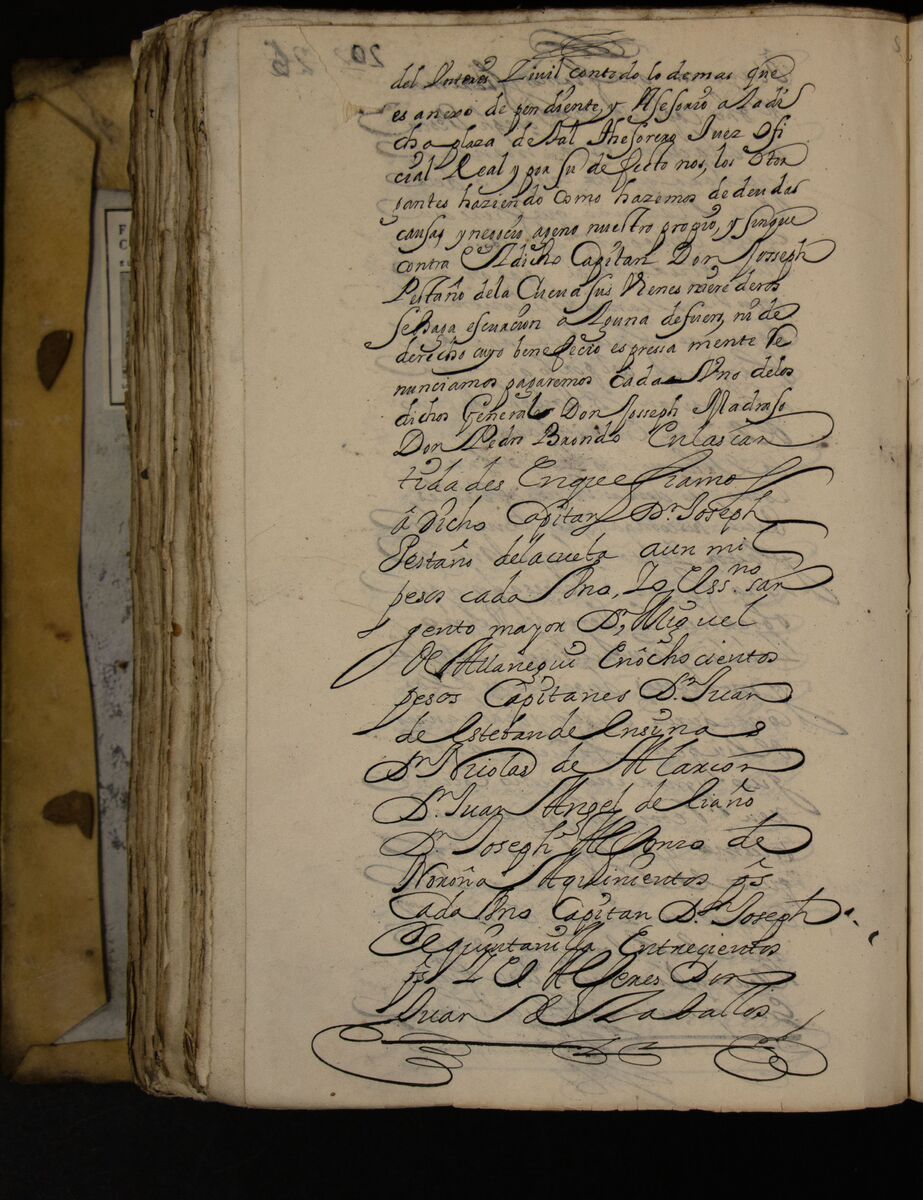 del Ynteres Zivil contodo lo demas que
es anexo de pendiente, y Asesorio a la di
cha plaza de tal Thesorero Juez ofi
cial Real y por su defecto nos, los otor
gantes haziendo como hazemos de deudas
causas y negocio ageno nuestro propio, y sinque
contra el dicho Capitan Don Josseph
Pestaño dela Cueua sus Vienes
se haga escucion a lguna defuero, ni de
derecho cuyo beneficio espressa mente Re
nunciamos pagaremos Cada Vno delos
dichos Generales Don Josseph Madraso
Don Pedro En las can
tidades Enque
â dicho Capitan Dn Joseph
Pestaño dela cueba aun mil
pesos cada Vno, Yo El ssno sar
gento mayor Dn Miguel
de Allanegui En ochocientos
pesos Capitanes Dn Juan
de Esteban de Ensina s
Dn Nicolas de Alarcon
Dn Juan Angel de Liaño
Dn Joseph Alfonso de
Noroña Aquinientos ps
Cada Vno Capitan Dn Joseph
de quintanilla Entrecientos
ps Y El Alferes Don
Juan de Zaballos